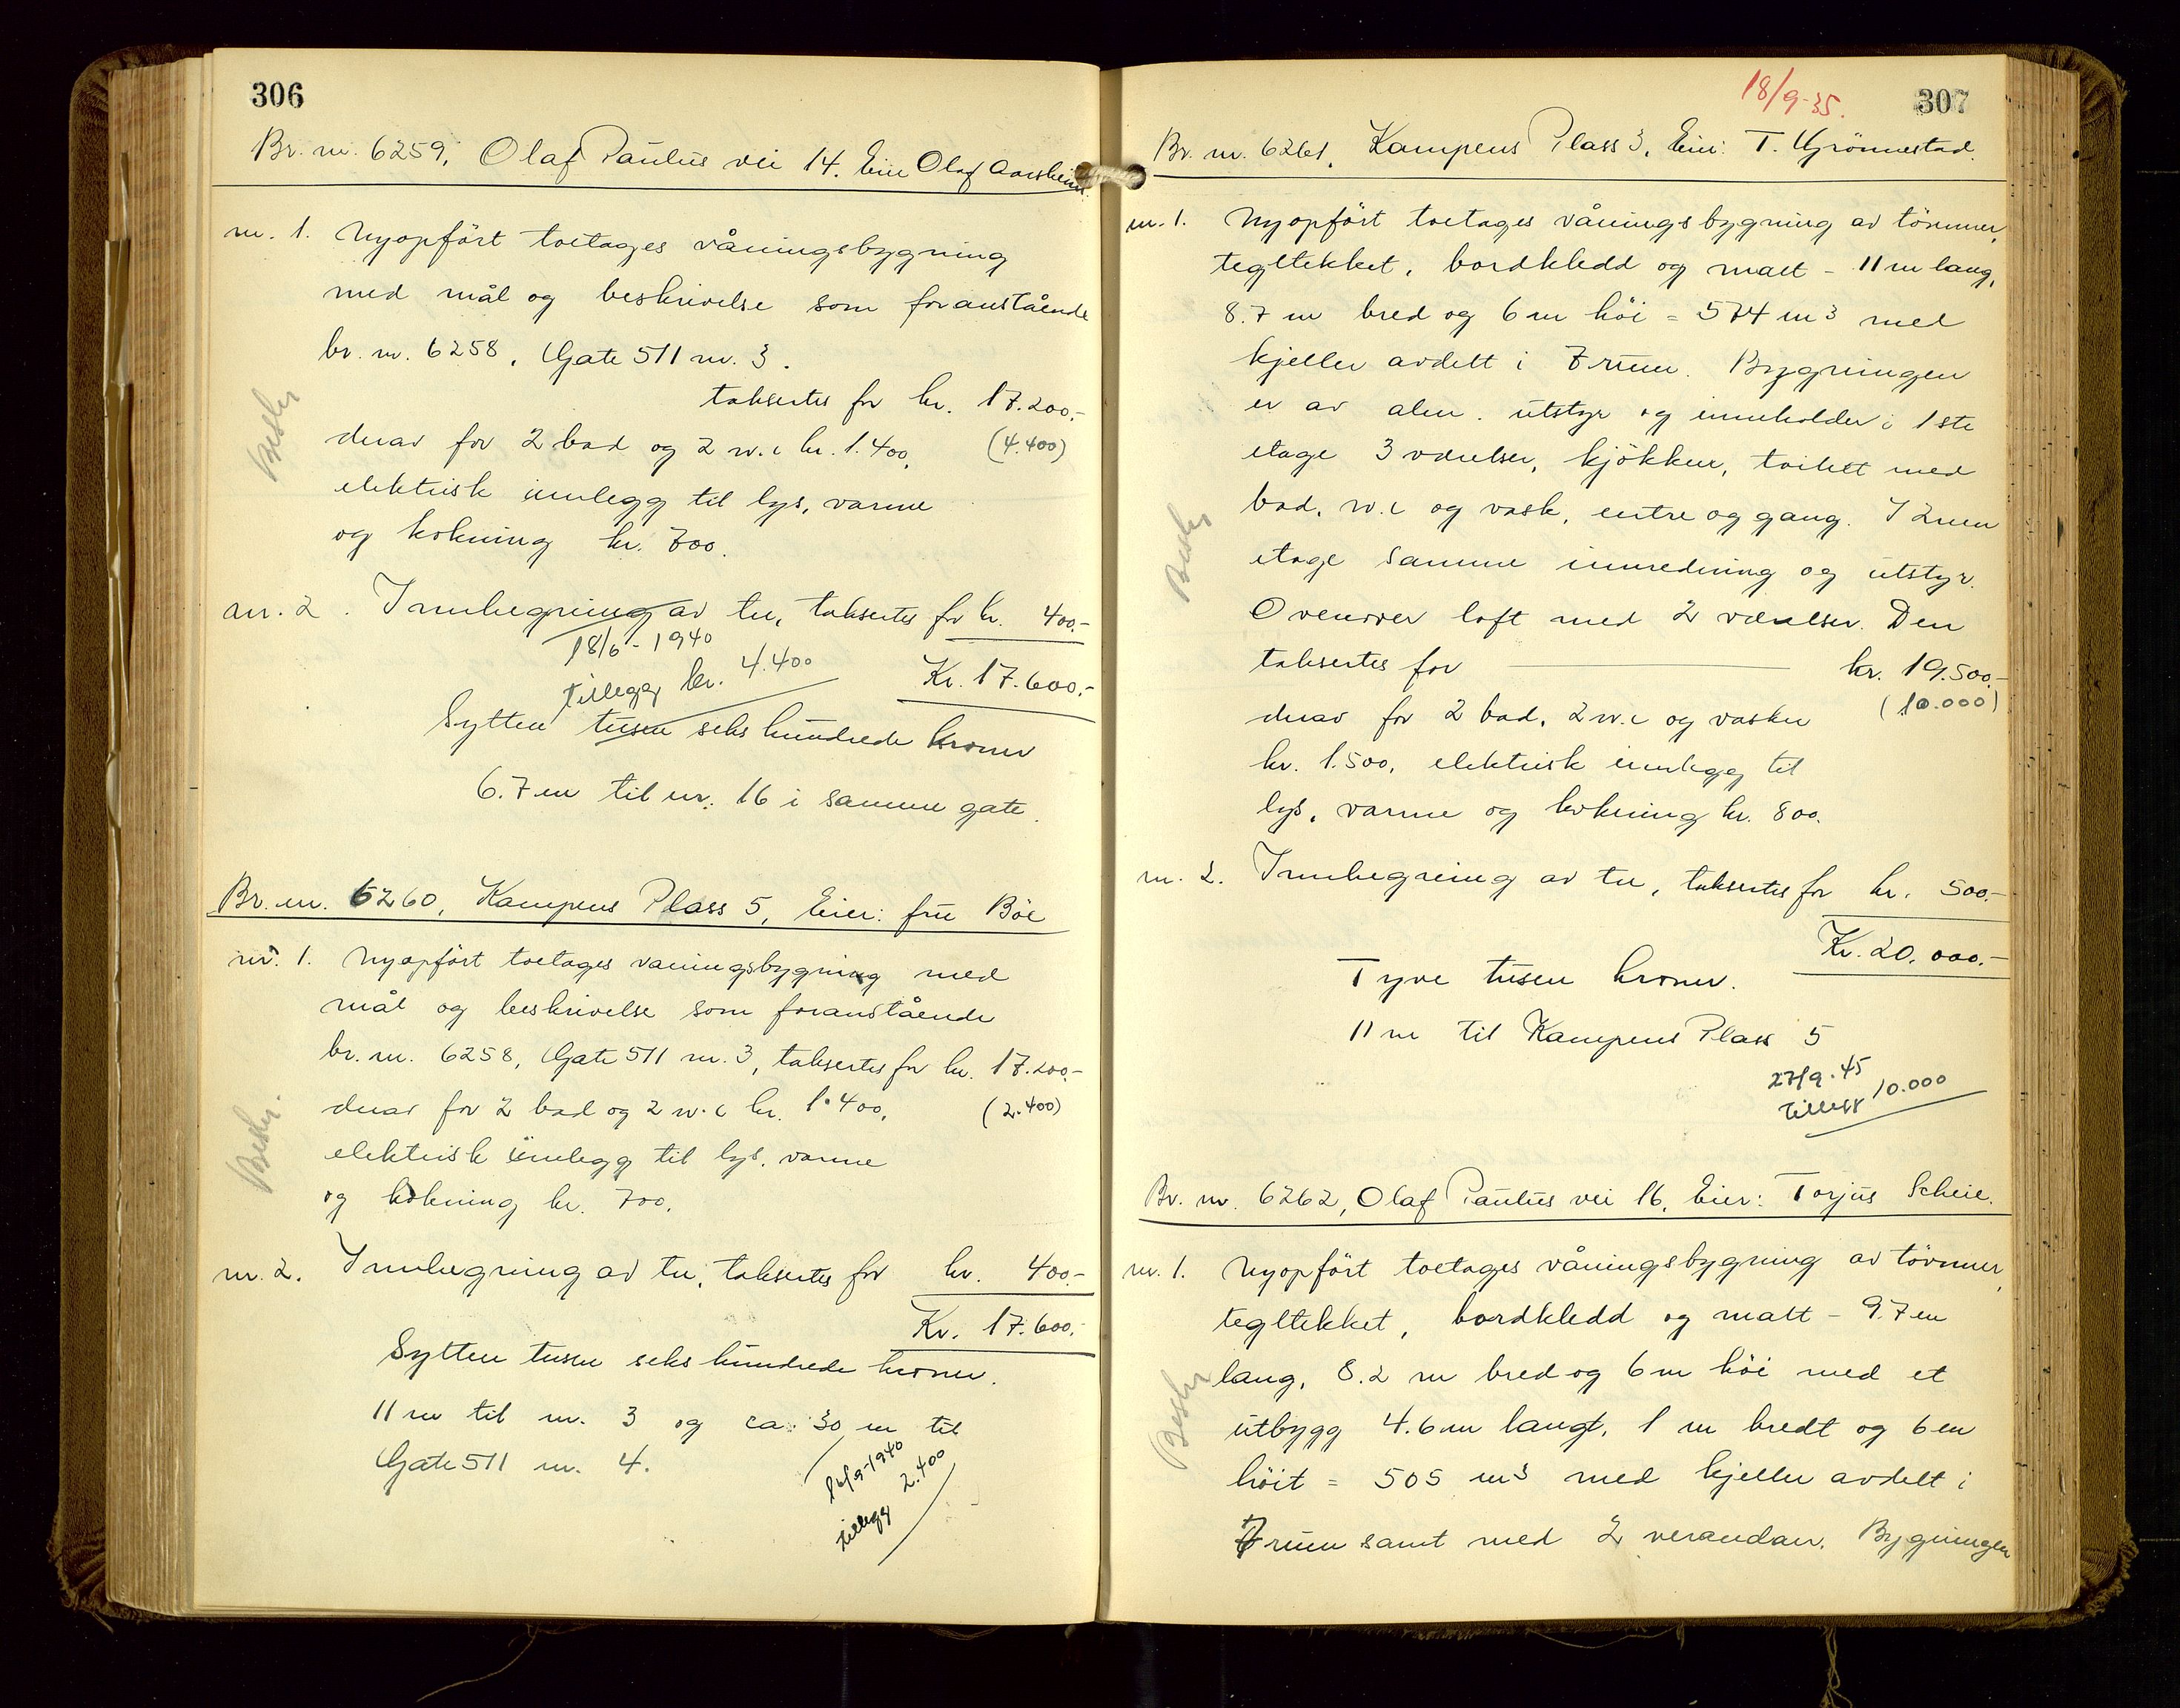 306
Br. nr. 6259, Olaf Paulus vei 14. Eier Olaf Aarsheim
nr. 1. Nyopført toetages våningsbygning
med mål og beskrivelse som foranstående
br. nr. 6258, Gate 511 nr. 3.
taksertes for kr. 17.200.-
derav for 2 bad og 2 w.c kr. 1.400, (4.400)
elektrisk innlegg til lys, varme
og kokning kr. 700.
Beskr
nr. 2. Innhegning av tre, taksertes for kr. 400.-
18/6-1940
Tillegg kr. 4.400
Kr. 17.600.-
Sytten tusen seks hundrede kroner
6.7 m til nr. 16 i samme gate.
Br. nr. 6260, Kampens Plass 5, Eier: fru Böe
nr. 1. Nyopfört toetages vaningsbygning med
mål og beskrivelse som foranstående
br. nr. 6258, Gate 511 nr. 3, taksertes for kr. 17.200.-
derav for 2 bad og 2 w.c kr. 1.400, (2.400)
elektrisk innlegg til lys, varme
og kokning kr. 700.
Beskr.
nr. 2. Innhegning av tre, taksertes for kr. 400.-
Kr. 17.600.-
Sytten tusen seks hundrede kroner.
11 m til nr. 3 og ca. 30 m til
Gate 511 nr. 4.
16/9-1940
tillegg 2.400
18/9-35.
307
Br. nr. 6261, Kampens Plass 3, Eier: T. Grönnestad.
nr. 1. Nyopfört toetages våningsbygning av tömmer,
tegltekket, bordkledd og malt - 11 m lang,
8.7 m bred og 6 m höi = 574 m3 med
kjeller avdelt i 7 rum. Bygningen
er av alm. utstyr og inneholder i 1ste
etage 3 værelser, kjökken, toilett med
bad, w.c og vask, entre og gang. I 2nen
etage samme innredning og utstyr.
Ovenover loft med 2 værelser. Den
taksertes for kr. 19.500.-
derav for 2 bad, 2 w.c og vasker (10.000)
kr. 1.500, elektrisk innlegg til
lys, varme og kokning kr. 800.
Beskr
nr. 2. Innhegning av tre, taksertes for kr. 500.-
Kr. 20.000.-
Tyve tusen kroner.
11 m til Kampens Plass 5
27/9-45
Tillegg 10.000
Br. nr. 6262, Olaf Paulus vei 16, Eier: Torjus Scheie.
nr. 1. Nyopfört toetages våningsbygning av tömmer,
tegltekket, bordkledd og malt - 9.7 m
lang, 8.2 m bred og 6 m höi med et
utbygg 4.6 m langt, 1 m bredt og 6 m
höit = 505 m3 med kjeller avdelt i
7 rum samt med 2 verandaer. Bygningen
Beskr